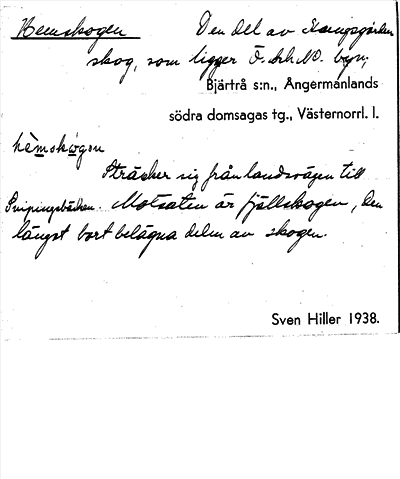 Hemskogen Den del av Kungsgården
skog, som ligger Ö. och NO. byn;
Bjärtrå s:n., Ångermanlands
södra domsagas tg., Västernorrl. l.
hèmskogen
Sträcker sig från landsvägen till
Snipingsbäcken. Motsatsen är fjällskogen, den
längst bort belägna delen av skogen.
Sven Hiller 1938.